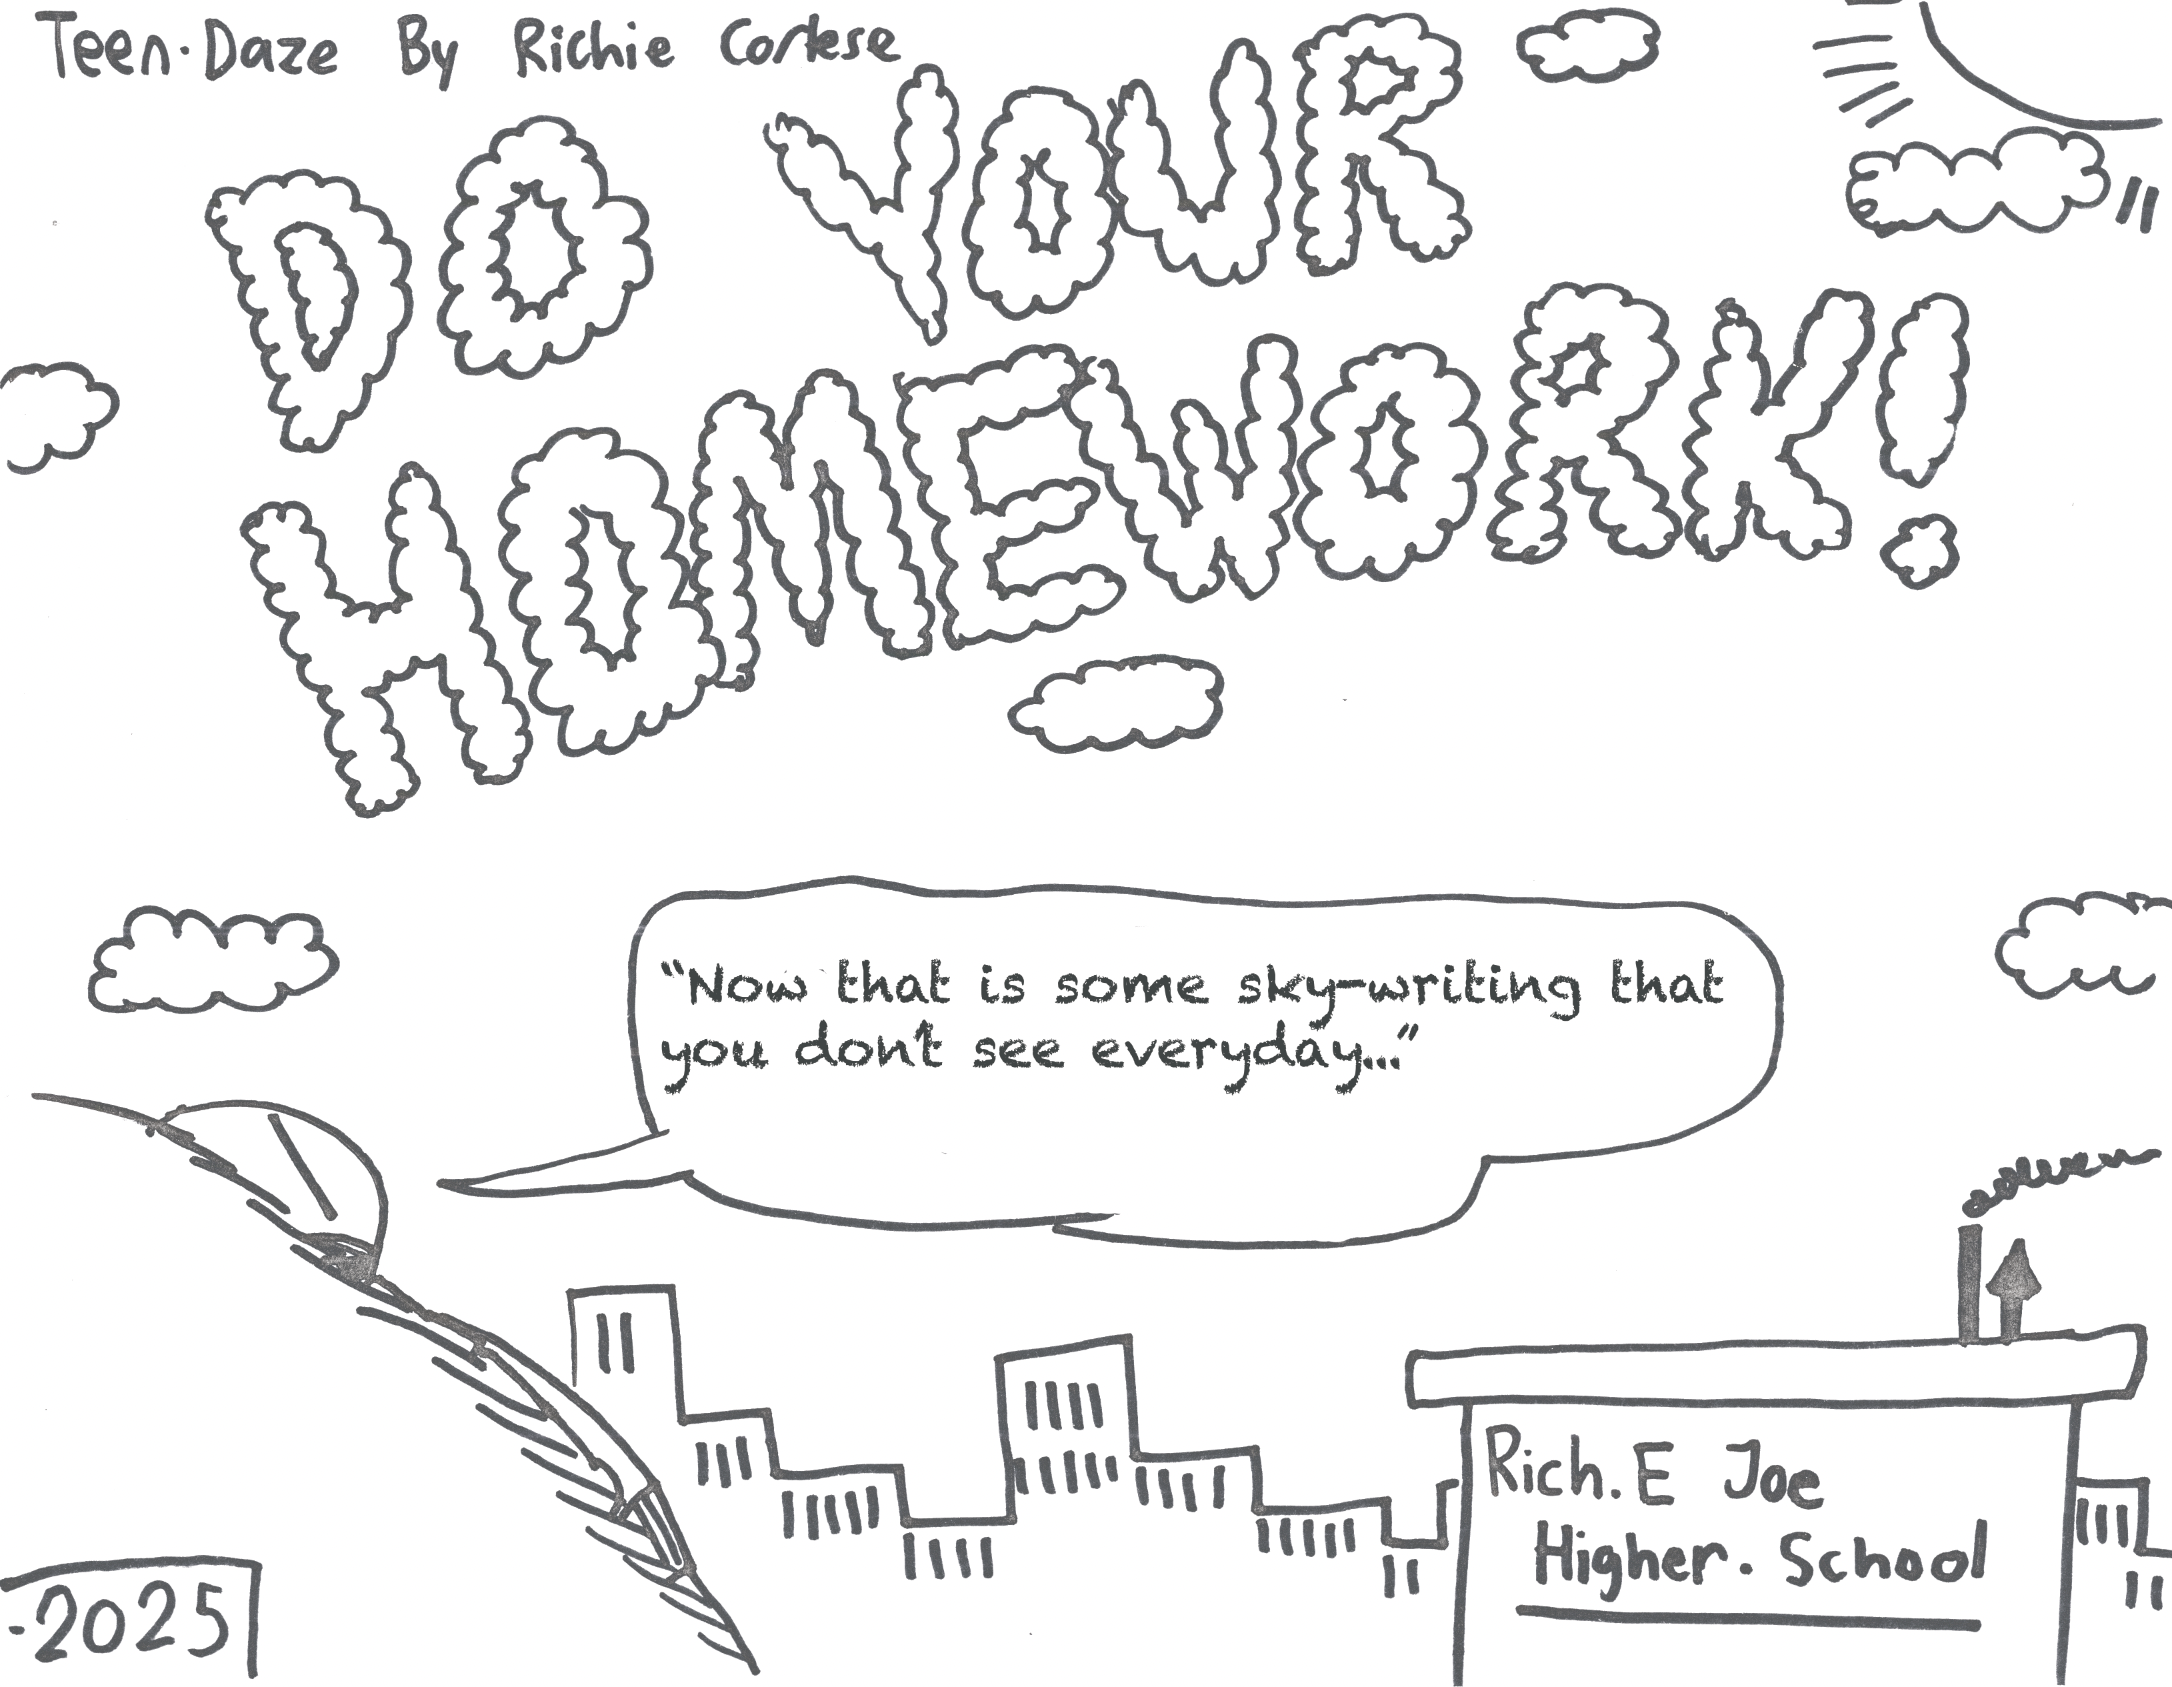 Teen-Daze By Richie Cortese
DO YOUR
HOMEWORK!
“Now that is some sky-writing that
you don't see everyday...”
Rich.E Joe
Higher. School
-2025